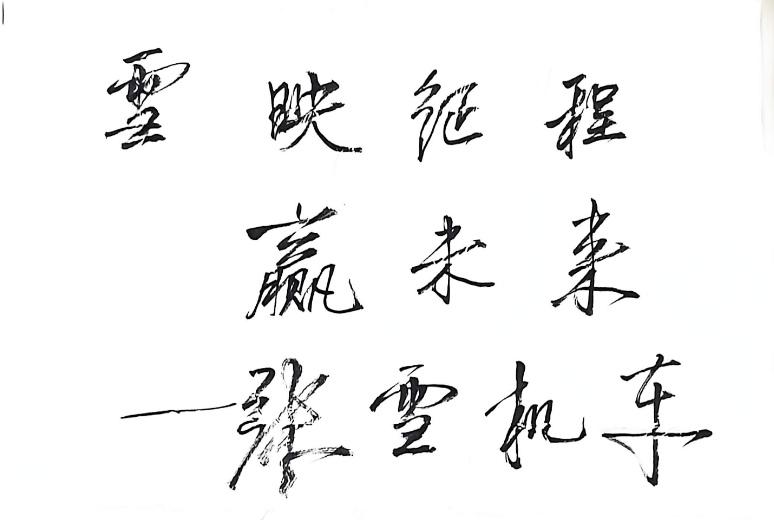 雪映征程
赢未来
一张雪机车